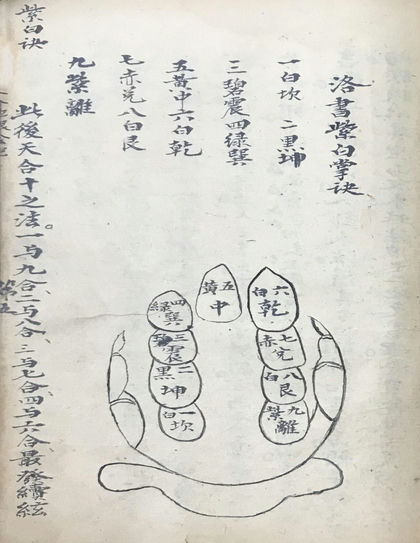 洛書紫白掌訣
一白坎 二黑坤
三碧震四綠巽
五黃中六白乾
七赤兌八白艮
九紫離
此後天合十之法。一与九合、二与八合、三与七合、四与六合、最發續絃
紫白訣
六白乾
七赤兌
八白艮
九紫離
五黃中
四綠巽
三碧震
二黑坤
一白坎